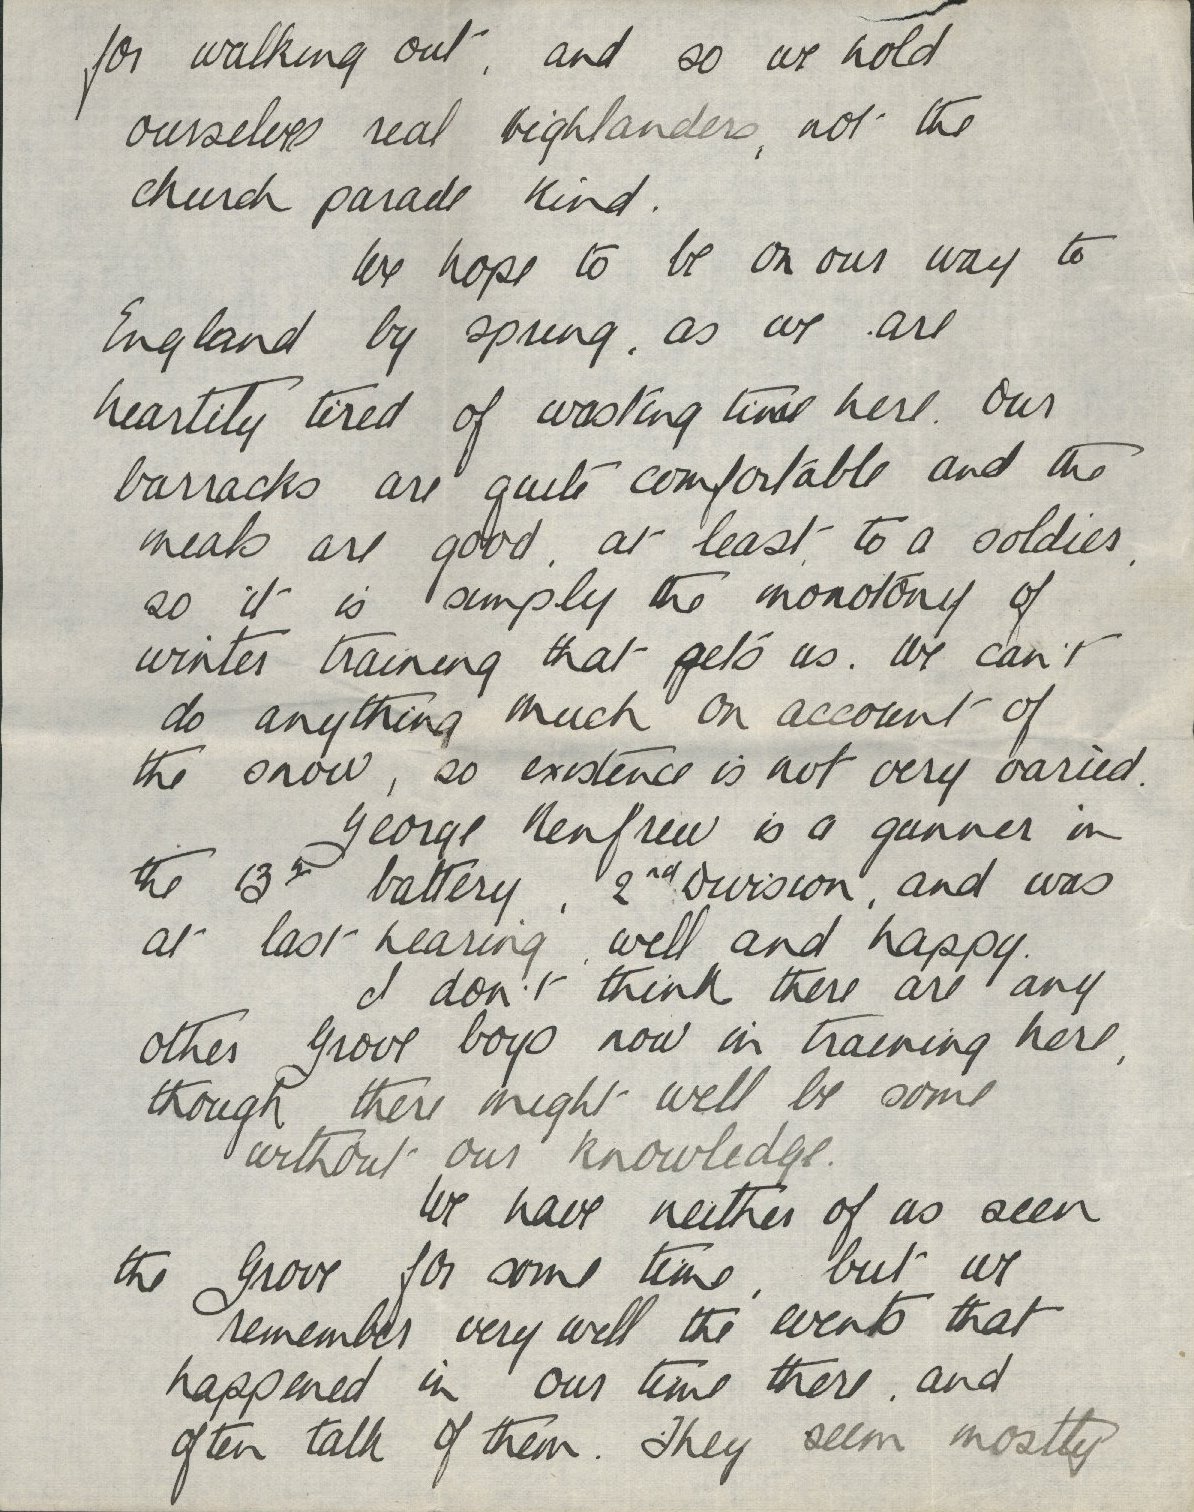 for walking out, and so we hold
ourselves real highlanders, not the
church parade kind.
We hope to be on our way to
England by spring, as we are
heartily tired of wasting time here. Our
barracks are quite comfortable and the
meals are good, at least to a soldier,
so it is simply the monotony of
winter training that gets us. We can't
do anything much on account of
the snow, so existence is not very varied.
George Renfrew is a gunner in
the 13th battery, 2nd Division, and was
at last hearing, well and happy.
I don't think there are any
other Grove boys now in training here,
though there might well be some
without our knowledge.
We have neither of us seen
the Grove for some time, but we
remember very well the events that
happened in our time there, and
often talk of them. They seem mostly